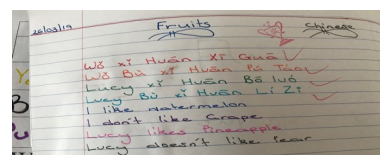 26/03/19 Fruits Chinese
Wǒ xǐ Huān Xī Guā
Wǒ Bù xǐ Huān Pú Táo
Lucy xǐ Huān Bō luó
Lucy Bù xǐ Huān Lí Zi
I like watermelon
I don't like Grape
Lucy likes Pineapple
Lucy doesn't like Pear